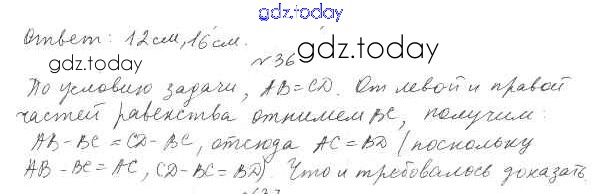 gdz.today
Ответ: 12см, 16 см.
gdz.today
№36
gdz.today
По условию задачи, AB = CD. От левой и правой
частей равенства отнимем BC, получим:
AB - BC = CD - BC, отсюда AC = BD (поскольку
AB - BC = AC, CD - BC = BD). Что и требовалось доказать
№37